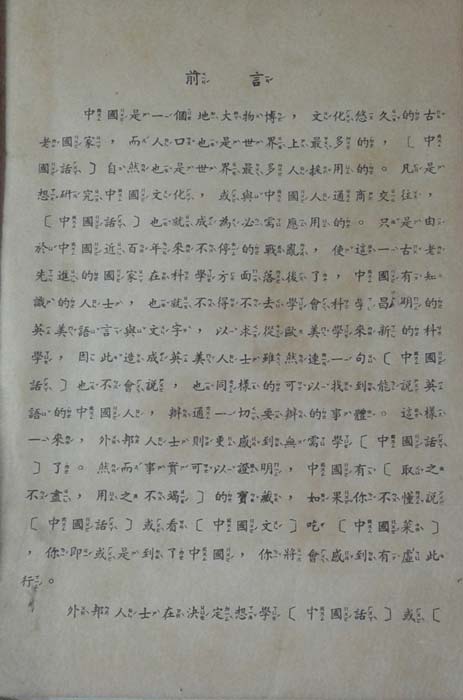 前言
中國是一個地大物博，文化悠久的古
老國家，而人口也是世界上最多的，〔中
國話〕自然也是世界最多人採用的。凡是
想研究中國文化，或與中國人通商交往，
〔中國話〕也就成為必需應用的。只是由
於中國近百年來不停的戰亂，使這一古老
先進的國家在科學方面落後了，中國有知
識的人士，也就不得不去學會科學昌明的
英美語言與文字，以求從歐美學來新的科
學，因此造成英美人士雖然連一句〔中國
話〕也不會說，也同樣的可以找到能說英
語的中國人，辦通一切要辦的事體。這樣
一來，外邦人士則更感到無需學〔中國話
〕了。然而事實可以證明，中國有〔取之
不盡，用之不竭〕的寶藏，如果你不懂說
〔中國話〕或看〔中國文〕吃〔中國菜〕
，你即或是到了中國，你將會感到有虛此
行。
外邦人士在決定想學〔中國話〕或〔